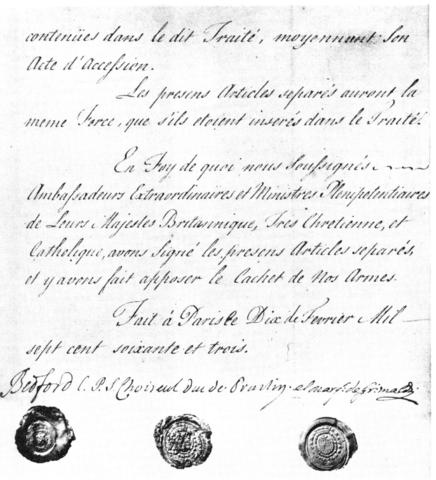 contenües dans le dit Traité, moyennant son
Acte d'Accession.
Les presens Articles separés auront la
meme Force, que s'ils étoient inserés dans le Traité.
En Foy de quoi nous soussignés
Ambassadeurs Extraordinaires et Ministres Plenipotentiaires
de Leurs Majestés Britannique, Très Chretienne, et
Catholique, avons signé les presens Articles separés,
et y avons fait apposer le Cachet de Nos Armes.
Fait à Paris le Dix de Fevrier Mil
sept cent soixante et trois.
Bedford C.P.S. Choiseul duc de Praslin. el marq. de Grimaldi